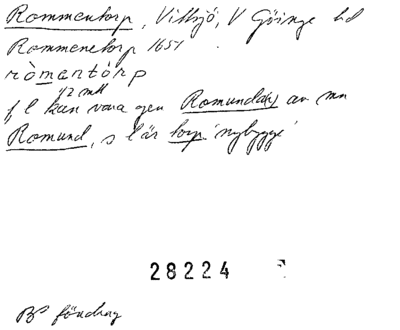 Rommentorp, Vittsjö, V Göinge hd
Rommenetorp 1651
ròmentórp
1/2 mtl
f l kan vara gen Romunda(r) av mn
Romund, s l är torp 'nybygge'
28224
föredrag